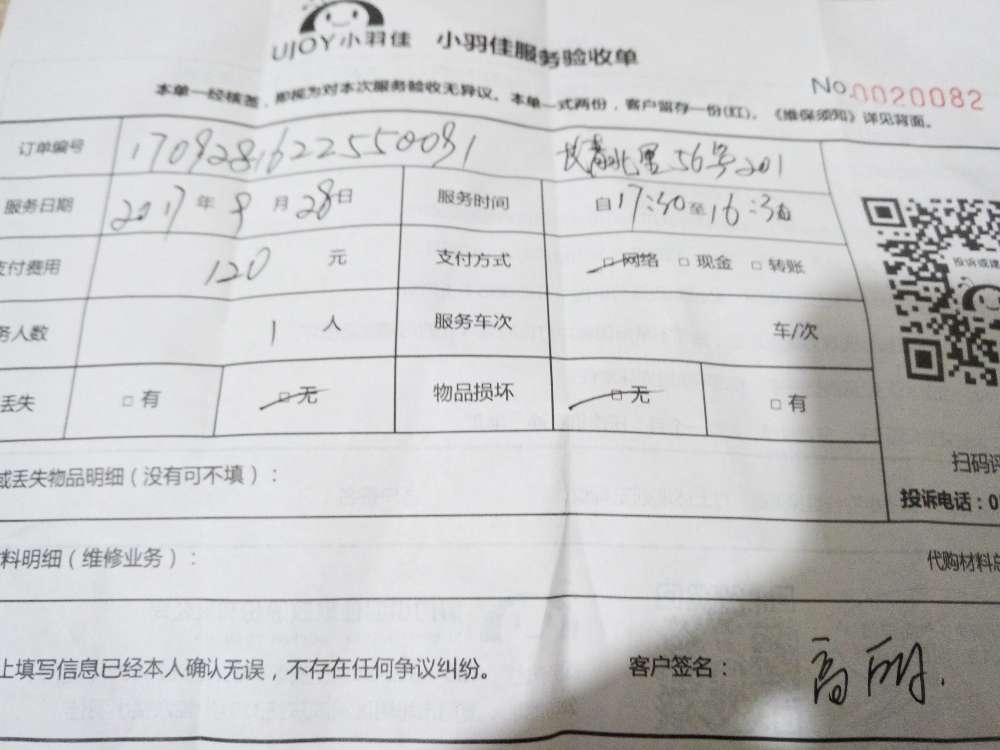 UJOY小羽佳 小羽佳服务验收单
No.0020082
本单一经核签，即视为对本次服务验收无异议。本单一式两份，客户留存一份(红)。《维保须知》详见背面。
订单编号 17092816225550091 长青北里56号201
服务日期 2017年9月28日 服务时间 自17:30至16:30
支付费用 120 元 支付方式 □网络 □现金 □转账
务人数 1 人 服务车次 车/次
丢失 □有 □无 物品损坏 □无 □有
投诉或建
扫码评
或丢失物品明细（没有可不填）：
投诉电话：0
料明细（维修业务）：
代购材料总
上填写信息已经本人确认无误，不存在任何争议纠纷。 客户签名：